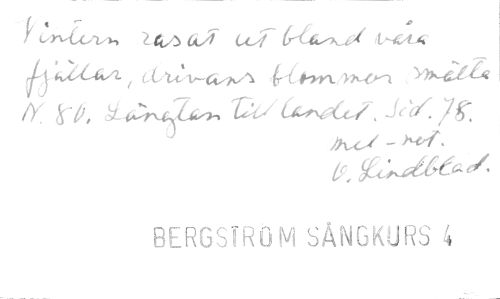 Vintern rasat ut bland våra
fjällar, drivans blommor smälta
N. 80. Längtan till landet. Sid. 78.
mel-not.
O. Lindblad.
BERGSTRÖM SÅNGKURS 4